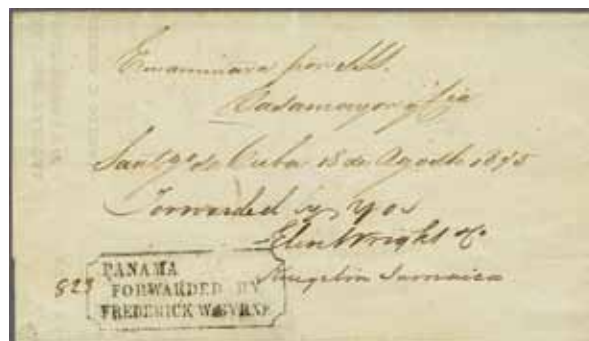 Encaminada por SSS.
Casamayor y Cia
Santgo de Cuba 15 de Agosto 1845
Forwarded by yos
Wright &c
Kingston Jamaica
823
PANAMA
FORWARDED BY
FREDERICK W. BYRNE